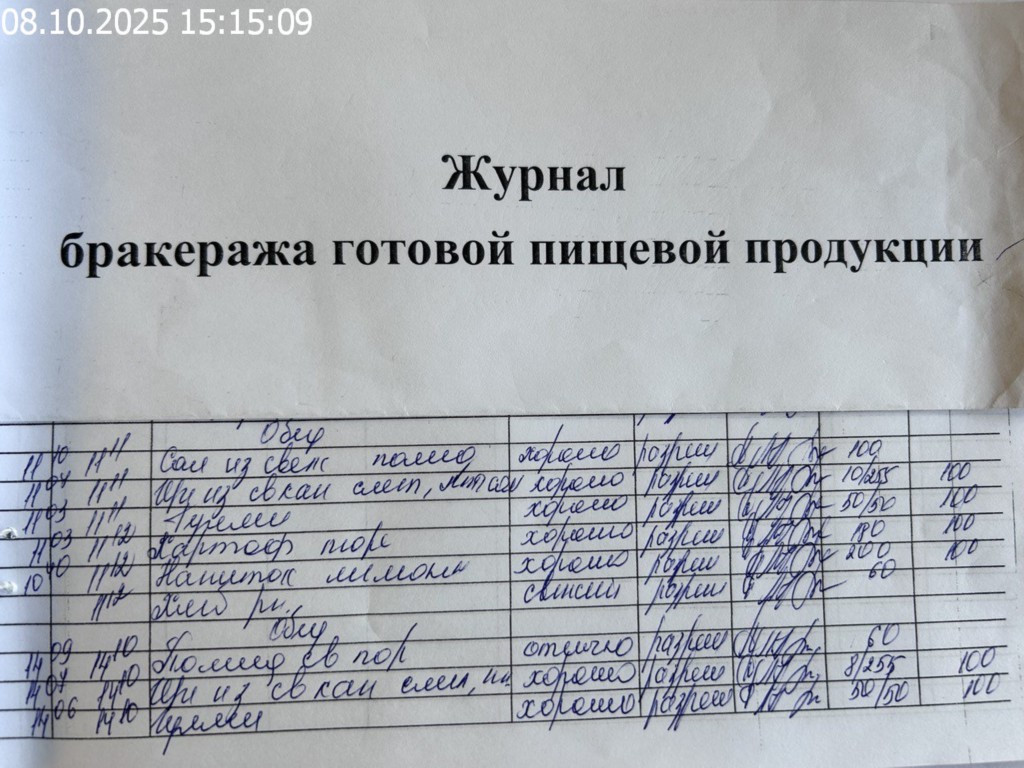 08.10.2025 15:15:09
Журнал
бракеража готовой пищевой продукции
Обед
11 10 11 11 Сал из свеж помид хорошо разреш 100
11 04 11 11 Щи из св кап смет, хорошо разреш 10/255 100
11 03 11 11 Гуляш хорошо разреш 50/50 100
11 03 11 12 Картоф пюре хорошо разреш 180 100
10 40 11 12 Напиток лимонн хорошо разреш 200 100
11 12 Хлеб рж. свежий разреш 60
Обед
14 09 14 10 Помид св пор отлично разреш 60
14 07 14 10 Щи из св кап смет, хорошо разреш 8/255 100
14 06 14 10 Гуляш хорошо разреш 50/50 100